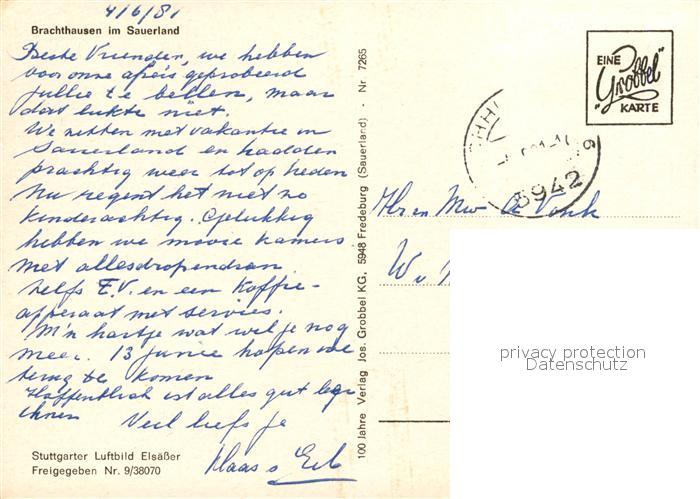 4/6/81
Brachthausen im Sauerland
Beste Vrienden, we hebben
voor onze afreis geprobeerd
jullie te bellen, maar
dat lukte niet.
We zitten met vakantie in
Sauerland en hadden
prachtig weer tot op heden
Nu regent het niet zo
kinderachtig. Gelukkig
hebben we mooie kamers
met alles
zelfs T.V. en een koffie-
apparaat met servies.
M'n hartje wat wil je nog
meer. 13 junie hopen we
terug te komen
Hoffentlich ist alles gut bei
Ihnen
Veel liefs
Klaas
Stuttgarter Luftbild Elsäßer
Freigegeben Nr. 9/38070
100 Jahre Verlag Jos. Grobbel KG, 5948 Fredeburg (Sauerland) - Nr 7265
EINE
"Grobbel"
KARTE
5942
Hr en Mw de Vonk
privacy protection
Datenschutz